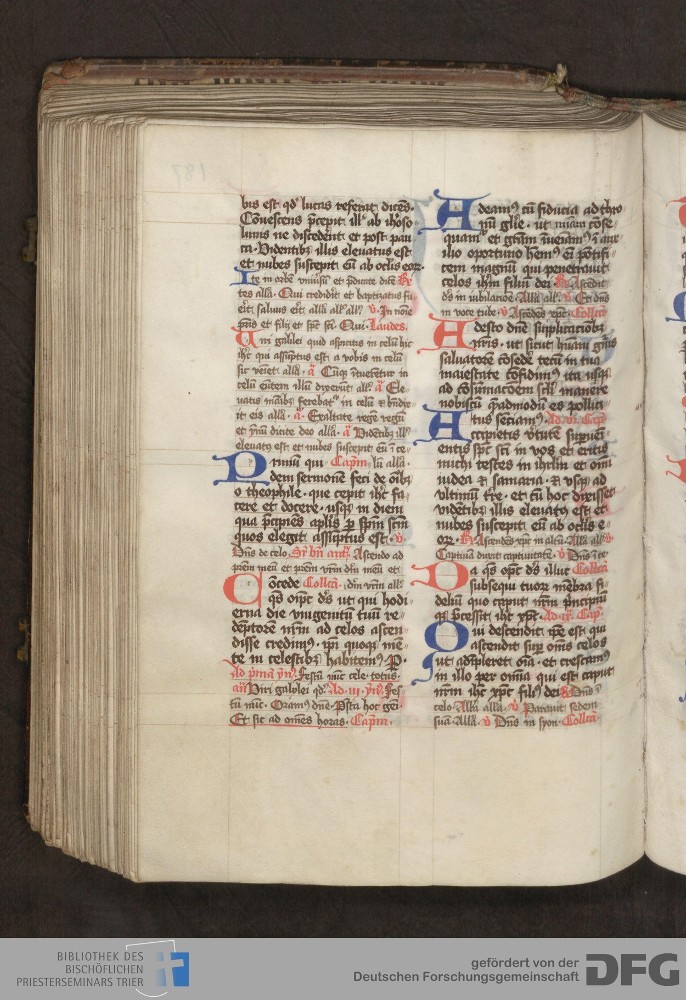 bis est qd' lucas referat dices.
Couescens precepit ill' ab ihoso
limis ne discederent et post pau
ca. Videntibz illis eleuatus est
et nubes suscepit eu ab oclis eorz.
Ite in orbe vniusu et pdicate dice R
tes alla. Qui crediderit et baptizatus fu
erit saluus erit alla all' all' v In noie
pris et filij et spc sci. Qui. Laudes.
Viri galilei quid aspicitis in celu hic
ihc qui assuptus est a vobis in celu
sic veniet alla. a Cuqz intueretur in
celu eutem illu dixerut all'. a Ele
uatis maibz ferebatr in celu et bndix
it eis alla. a. Exaltate rege regu
et ymnu dicite deo alla. a Videntibz ill'
eleuatus est et nubes suscepit eu i ce
Primu qui Capm lu alla.
dem sermone feci de oibz
o theophile. que cepit ihc fa
cere et docere. usqz in diem
qua pcipiens aplis per spm scm
quos elegit assuptus est. v
Dns de celo. Sr bn ant. Ascendo ad
prem meu et prem vrm dm meu et
Cocede Collca. dm vrm all'
qs oipc ds ut qui hodi
erna die vnigenitu tuu re
deptore nrm ad celos ascen
disse credimus. ipi quoqz me
te in celestibz habitemus P.
Ad pma yn. Festu nuc cele totus.
an Viri galilei qd. Ad .iii. yn. Fes
tu nuc. Oramus dne. Psta hoc gei.
Et sic ad omes horas. Capm.
Adeamus cu fiducia ad thro
nu glie. ut miam cose
quamr et gram iueiam i aux
ilio oportuno hemus eu potifi
cem magnu qui penetrauit
celos ihm filiu dei R. Ascedit
ds in iubilacoe. Alla all'. v Et dns
in voce tube. v Ascedes xpc. Collca
Adesto dne supplicacoibz
nris. ut sicut humai gnis
saluatore cosede tecu in tua
maiestate cofidimus ita usqz
ad cosumacoem scli manere
nobiscu queadmodu es pollici
Ad vi. Cap.
Accipietis vtute superueni
entis spc sci in vos et eritis
michi testes in ihrlm et omi
iudea et samaria. et usqz ad
vltimu tre. et cu hoc dixisset
videntibz illis eleuatus est et
nubes suscepit eu ab oclis e
orz. R. Ascendes xpc in altu. Alla all' v
Captiua duxit captiuitate. v Dns i ce.
Da qs opc ds illuc Collca
subsequi tuorz membra fi
deliu quo caput nrm principiu
qz pcessit ihc xpc. Ad ix. Cap.
Qui descendit ipe est qui
ascendit super omes celos
ut adipleret oia. et crescamus
in illo per omia qui est caput
nrm ihc xpc filius dei R Dns i
celo. Alla alla. v Parauit sedem
sua Alla. v Dns in syon. Collca.
BIBLIOTHEK DES
BISCHÖFLICHEN
PRIESTERSEMINARS TRIER
gefördert von der
Deutschen Forschungsgemeinschaft
DFG